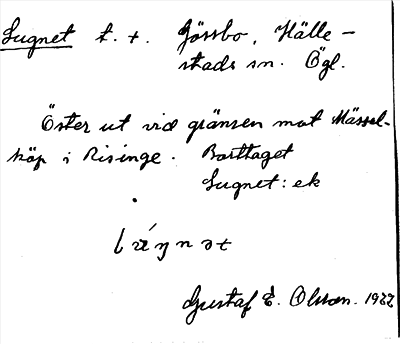 Lugnet t. +. Jössbo, Hälle-
stads sn. Ögl.
Öster ut vid gränsen mot Mässel-
köp i Risinge. Borttaget
Lugnet: ek
Gustaf E. Olsson. 1922